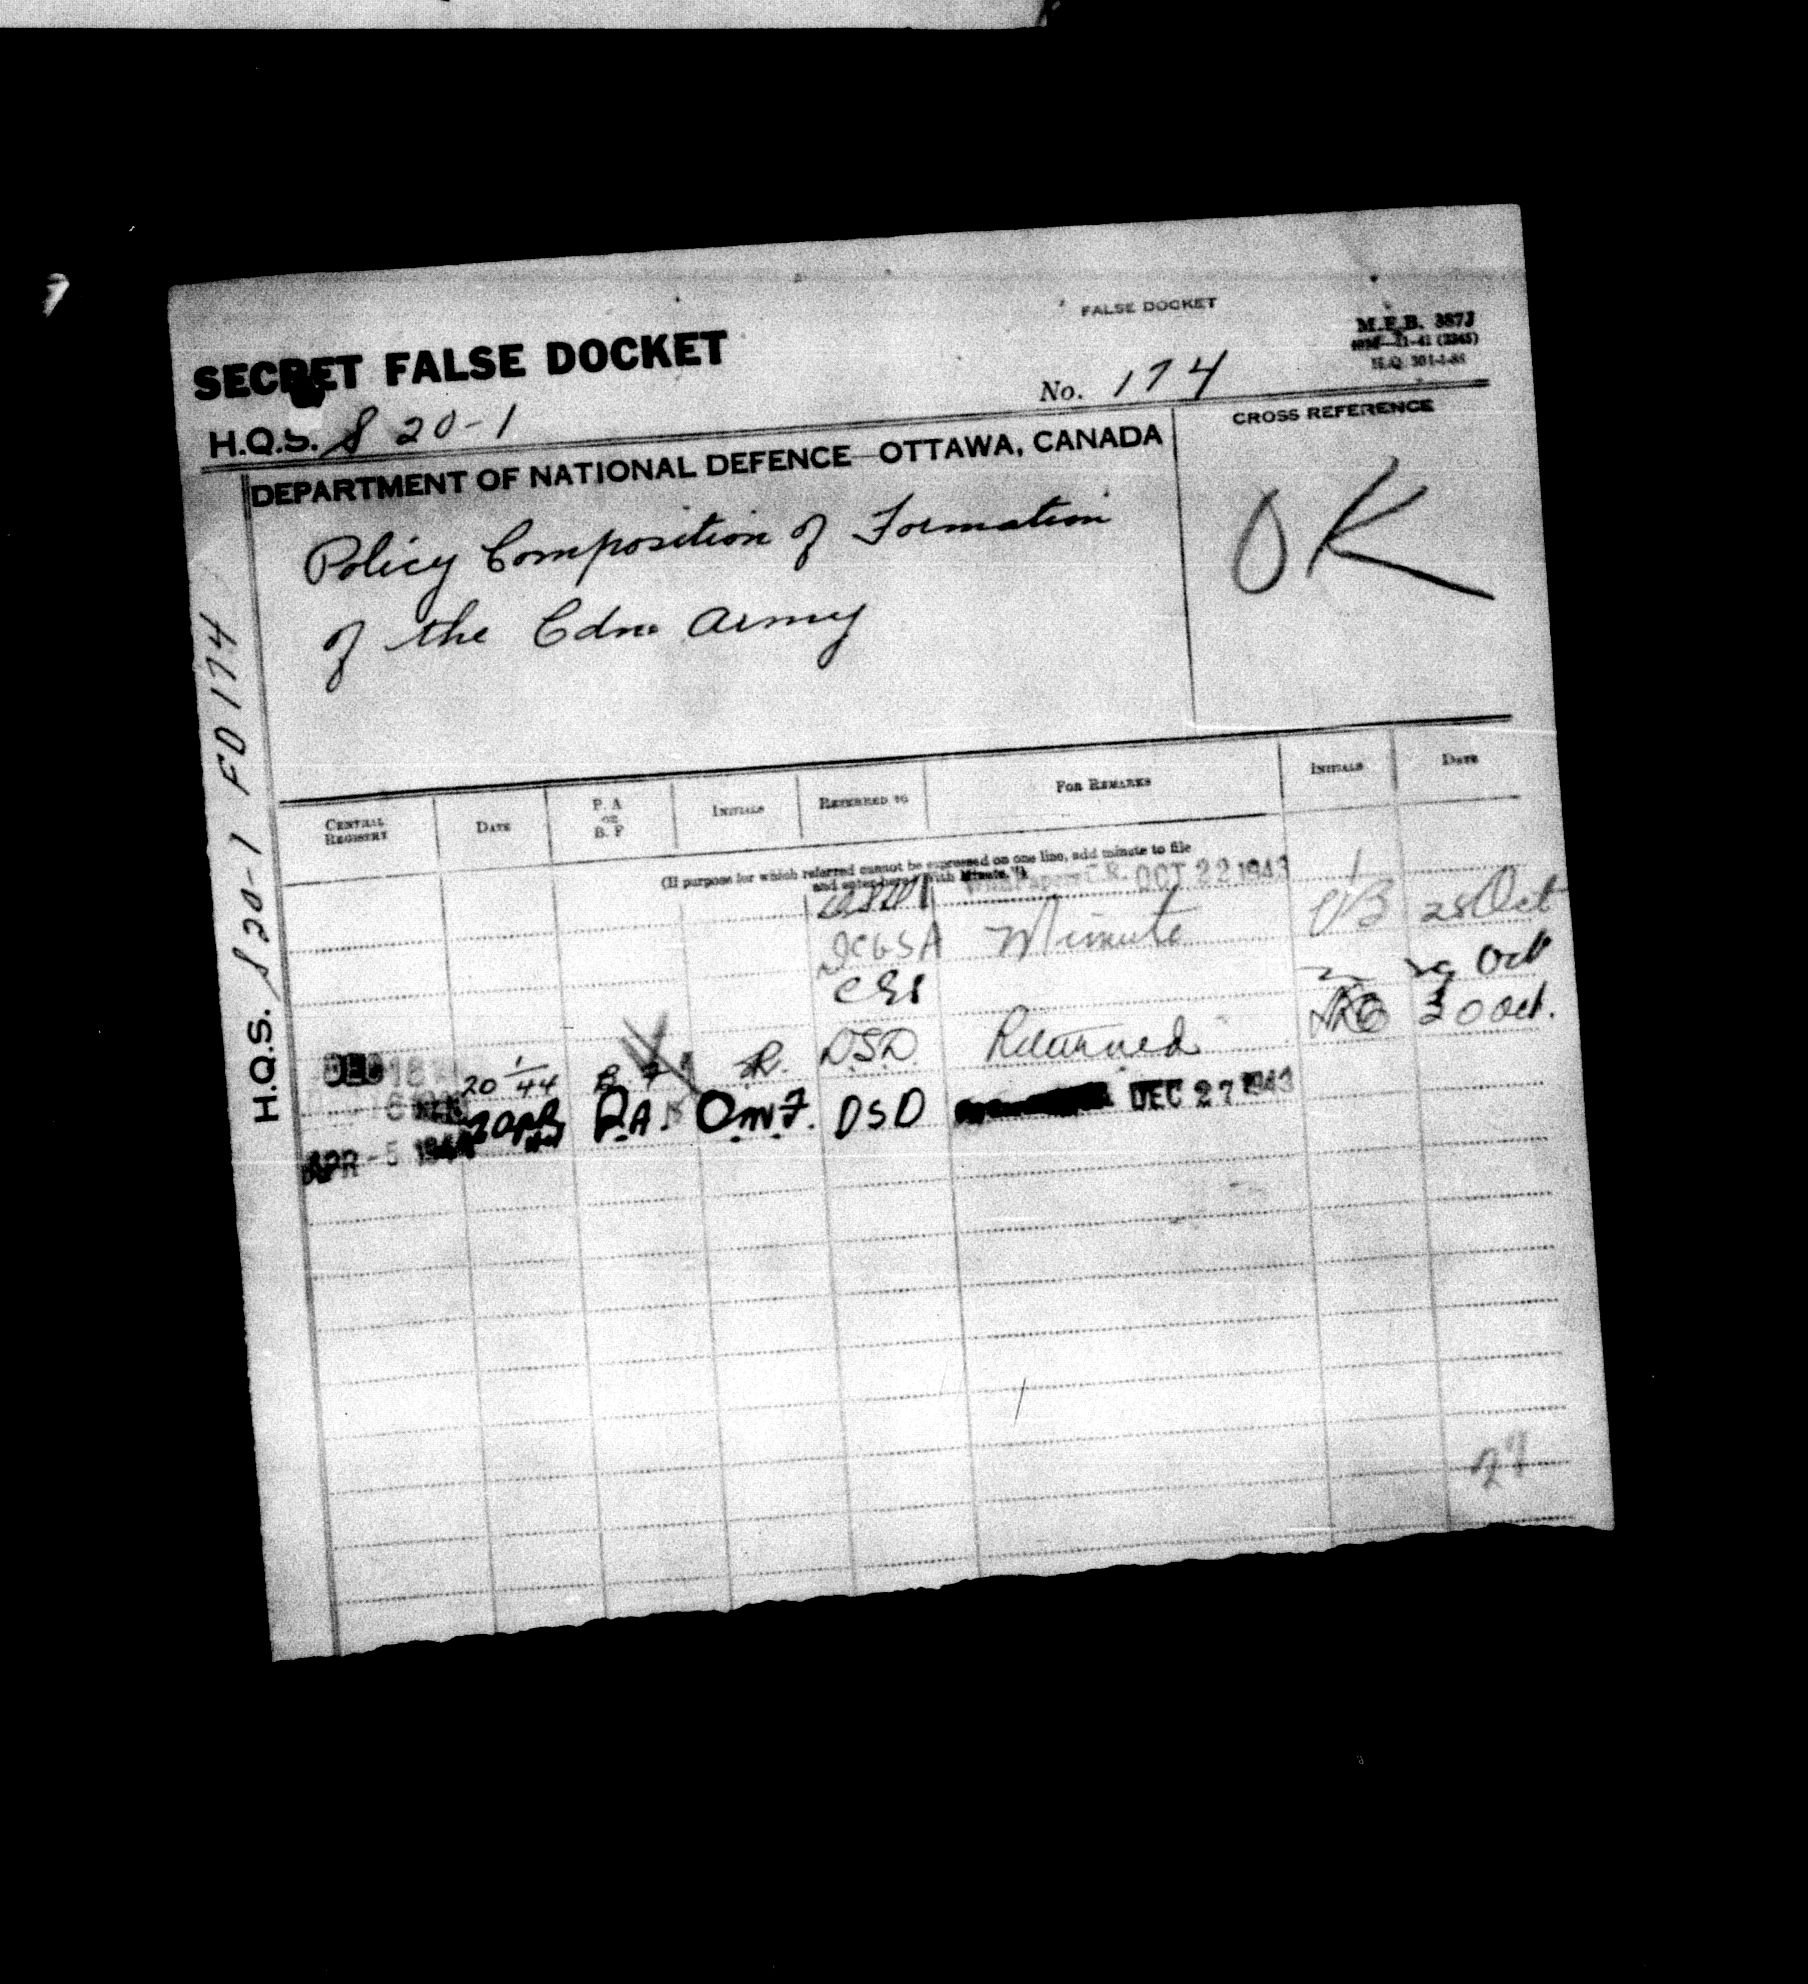 FALSE DOCKET
M.F.B. 387J
H.Q. 301-1-88
SECRET FALSE DOCKET
No. 174
H.Q.S. S 20-1
CROSS REFERENCE
DEPARTMENT OF NATIONAL DEFENCE—OTTAWA, CANADA
OK
Policy Composition of Formation
of the Cdn. Army
H.Q.S. S 20-1 FD 174
CENTRAL REGISTRY DATE P. A OR B. F INITIALS REFERRED TO FOR REMARKS INITIALS DATE
(If purpose for which referred cannot be expressed on one line, add minute to file
and enter here "With Minute.")
With Papers C.R. OCT 22 1943
DCGSA Minute 25 Oct
Oct
DSD Returned 30 Oct.
DEC 16 20 1/44 B F R. DSD DEC 27 1943
APR - 5 1944 P.A. OMF.
27